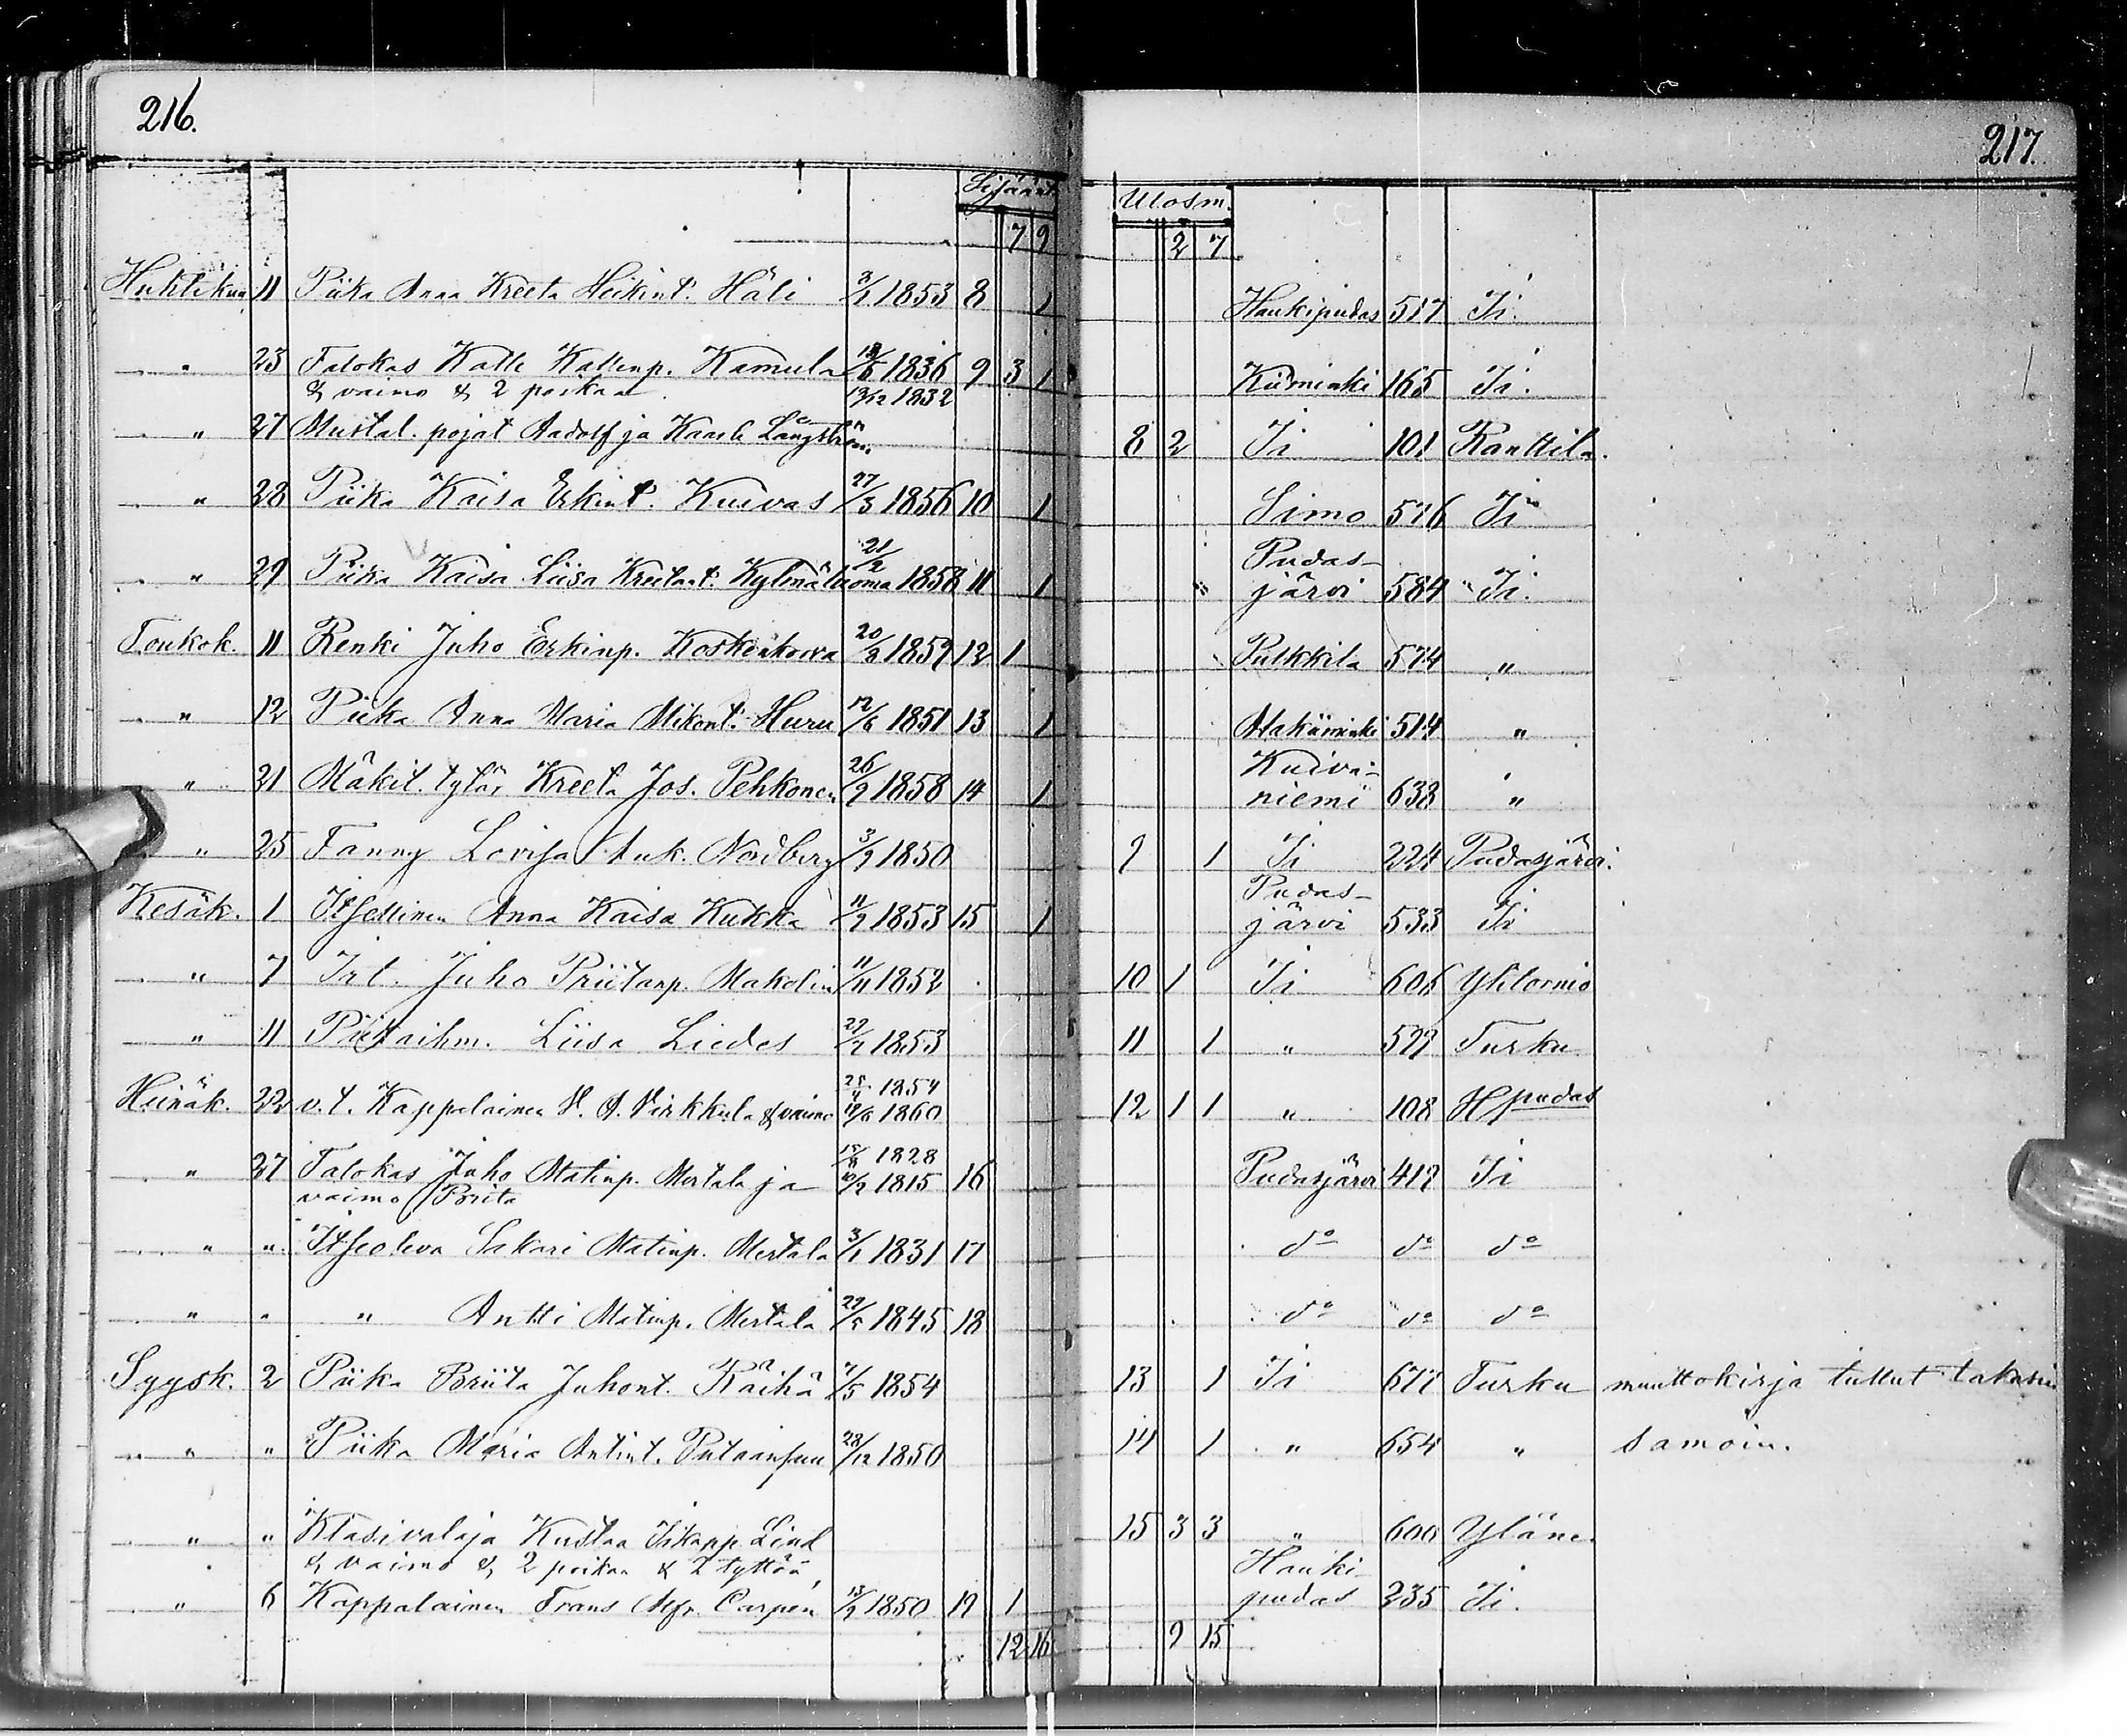 216.
217.
Sisäänm. Ulosm.
7 9 2 7
Huhtikuu 11 Piika Anna Kreeta Heikint. Häli 3/2 1853 8 1 Haukipudas 517 Ii.
" 23 Talokas Kalle Kallenp. Kamula 1836 9 3 1 Kiiminki 165 Ii.
& vaimo & 2 poikaa. 13/12 1832
" 27 Mustal. pojat Aadolf ja Kaarle Långström 8 2 Ii 101 Ranttila.
" 28 Piika Kaisa Erkint. Kuivas 27/3 1856 10 1 Simo 576 Ii
" 29 Piika Kaisa Liisa Kreetant. Kylmäluoma 21/2 1858 11 1 Pudas-
järvi 584 Ii.
Toukok. 11 Renki Juho Erkinp. Koskenkorva 20/8 1859 12 1 Pulkkila 574 "
" 12 Piika Anna Maria Mikont. Huru 12/6 1851 13 1 514 "
" 21 Mäkit. tytär Kreeta Jos. Pehkonen 26/9 1858 14 1 Kuiva-
niemi 638 "
" 25 Fanny Lovisa Auk. Nordberg 3/9 1850 9 1 Ii 224 Pudasjärvi.
Kesäk. 1 Itsellinen Anna Kaisa Kukka 11/2 1853 15 1 Pudas-
järvi 533 Ii
" 7 Irt. Juho Priitanp. Makolin 11/11 1852 10 1 Ii 606 Ylitornio
" 11 Liisa Liedes 29/2 1853 11 1 " 599 Turku
Heinäk. 22 v.t. Kappalainen V. A. Virkkula & vaimo 1854 1860 12 1 1 " 108 Hpudas
" 27 Talokas Juho Matinp. Mertala ja 1828 1815 16 Pudasjärvi 419 Ii
vaimo Brita
" " Itseoleva Sakari Matinp. Mertala 3/1 1831 17 do do do
" " " Antti Matinp. Mertala 29/5 1845 18 do do do
Syysk. 2 Piika Briita Juhont. Räihä 7/5 1854 13 1 Ii 677 Turku muuttokirja tullut takasin
" " Piika Maria Antint. Putaansuu 28/12 1850 14 1 " 654 " samoin.
" " Klasivalaja Kustaa Lind 15 3 3 " 600 Yläne.
& vaimo & 2 poikaa & 2 tyttöä,
" 6 Kappalainen Frans Carpen 13/9 1850 19 1 Hauki-
pudas 235 Ii.
12 16 9 15